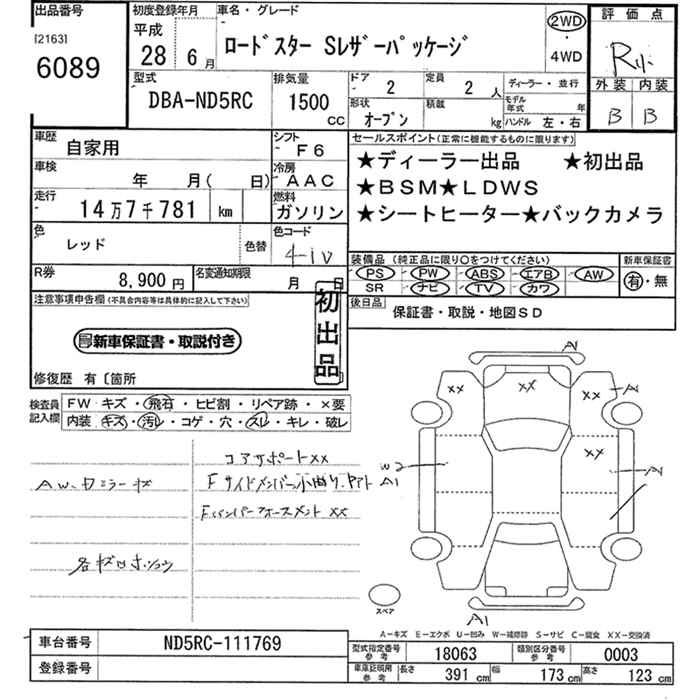 出品番号 初度登録年月 車名・グレード 評価点
[2163] 平成 2WD
6089 28年 6月 ロードスター Sレザーパッケージ ・ 4WD R
型式 排気量 ドア 定員 ディーラー・並行 外装 内装
DBA-ND5RC 1500cc 2 2人 モデル年式 年 B B
形状 積載
オープン kg ハンドル 左・右
車歴 自家用 シフト F6 セールスポイント(正常に機能するものに限ります)
車検 年 月( 日) 冷房 AAC ★ディーラー出品 ★初出品
走行 14万7千781 km 燃料 ガソリン ★BSM★LDWS
色 レッド 色替 色コード 41V ★シートヒーター★バックカメラ
R券 8,900円 名変通知期限 月 日 装備品(純正品に限り○をつけてください) 新車保証書
PS PW ABS エアB AW 有・無
SR ナビ TV カワ
注意事項申告欄(不具合内容等は具体的に記入して下さい) 後日品
初出品 保証書・取説・地図SD
新車保証書・取説付き
修復歴 有〔箇所
検査員記入欄 FW キズ・飛石・ヒビ割・リペア跡・×要
内装・キズ・汚レ・コゲ・穴・スレ・キレ・破レ
コアサポートXX
AW、ドミラーキズ Fサイドメンバー小曲り、
FインバーフォースメントXX
各キズ
A1
XX XX XX A
XX
W2 A
A1
スペア A1
A-キズ E-エクボ U-凹み W-補修跡 S-サビ C-腐食 XX-交換済
車台番号 ND5RC-111769 型式指定番号 参考 18063 類別区分番号 参考 0003
登録番号 車庫証明用 参考 長さ 391 cm 幅 173 cm 高さ 123 cm